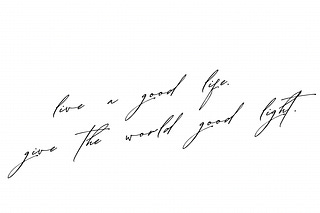 live a good life.
give the world good light.